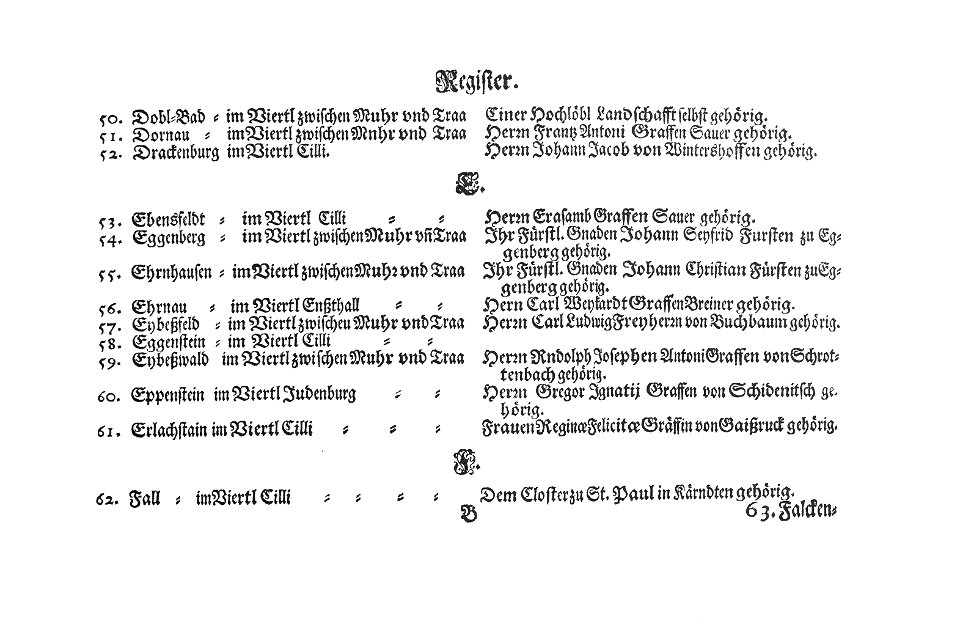 Register.
50. Dobl-Bad ⸗ im Viertl zwischen Muhr vnd Traa Einer Hochlöbl Landschafft selbst gehörig.
51. Dornau ⸗ im Viertl zwischen Mnhr vnd Traa Herrn Frantz Antoni Graffen Sauer gehörig.
52. Drackenburg im Viertl Cilli. Herrn Johann Jacob von Wintershoffen gehörig.
E.
53. Ebensfeldt ⸗ im Viertl Cilli ⸗ ⸗ Herrn Erasamb Graffen Sauer gehörig.
54. Eggenberg ⸗ im Viertl zwischen Muhr vñ Traa Ihr Fürstl. Gnaden Johann Seyfrid Fursten zu Eg⸗
genberg gehörig.
55. Ehrnhausen ⸗ im Viertl zwischen Muhr vnd Traa Ihr Fürstl. Gnaden Johann Christian Fürsten zu Eg⸗
genberg gehörig.
56. Ehrnau ⸗ im Viertl Enßthall ⸗ ⸗ Hern Carl Weykardt Graffen Breiner gehörig.
57. Eybeßfeld ⸗ im Viertl zwischeu Muhr vnd Traa Herrn Carl Ludwig Freyherrn von Buchbaum gehörig.
58. Eggenstein ⸗ im Viertl Cilli ⸗ ⸗
59. Eybeßwald im Viertl zwischen Muhr vnd Traa Herrn Rndolph Josephen Antoni Graffen von Schrot⸗
tenbach gehörig.
60. Eppenstein im Viertl Judenburg ⸗ ⸗ Herrn Gregor Ignatij Graffen von Schidenitsch ge⸗
hörig.
61. Erlachstain im Viertl Cilli ⸗ ⸗ ⸗ Frauen Reginæ Felicitæ Gräffin von Gaißruck gehörig.
F.
62. Fall ⸗ im Viertl Cilli ⸗ ⸗ ⸗ ⸗ Dem Closter zu St. Paul in Kärndten gehörig.
B 63. Falcken⸗